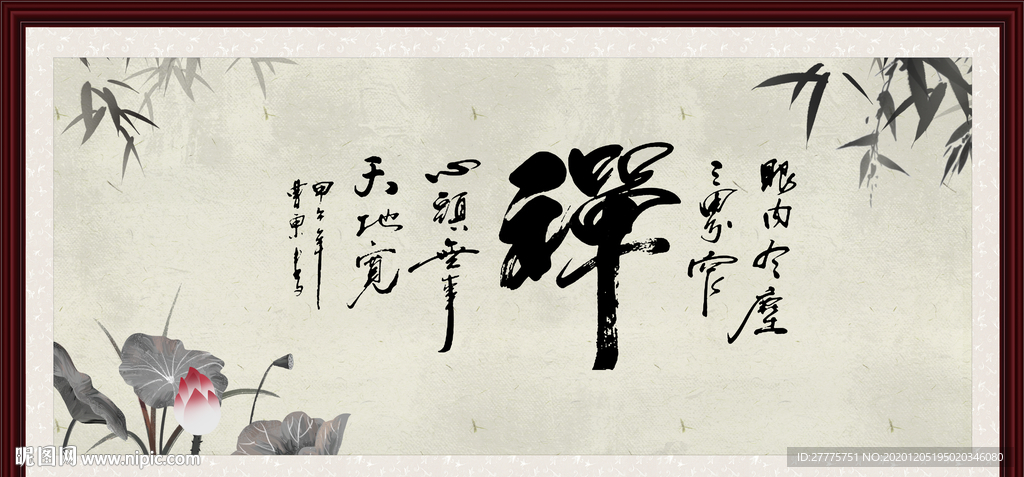 眼内有塵
三界窄
禪
心頭無事
天地寬
甲午年
昵图网 www.nipic.com
ID:27775751 NO:20201205195020346080